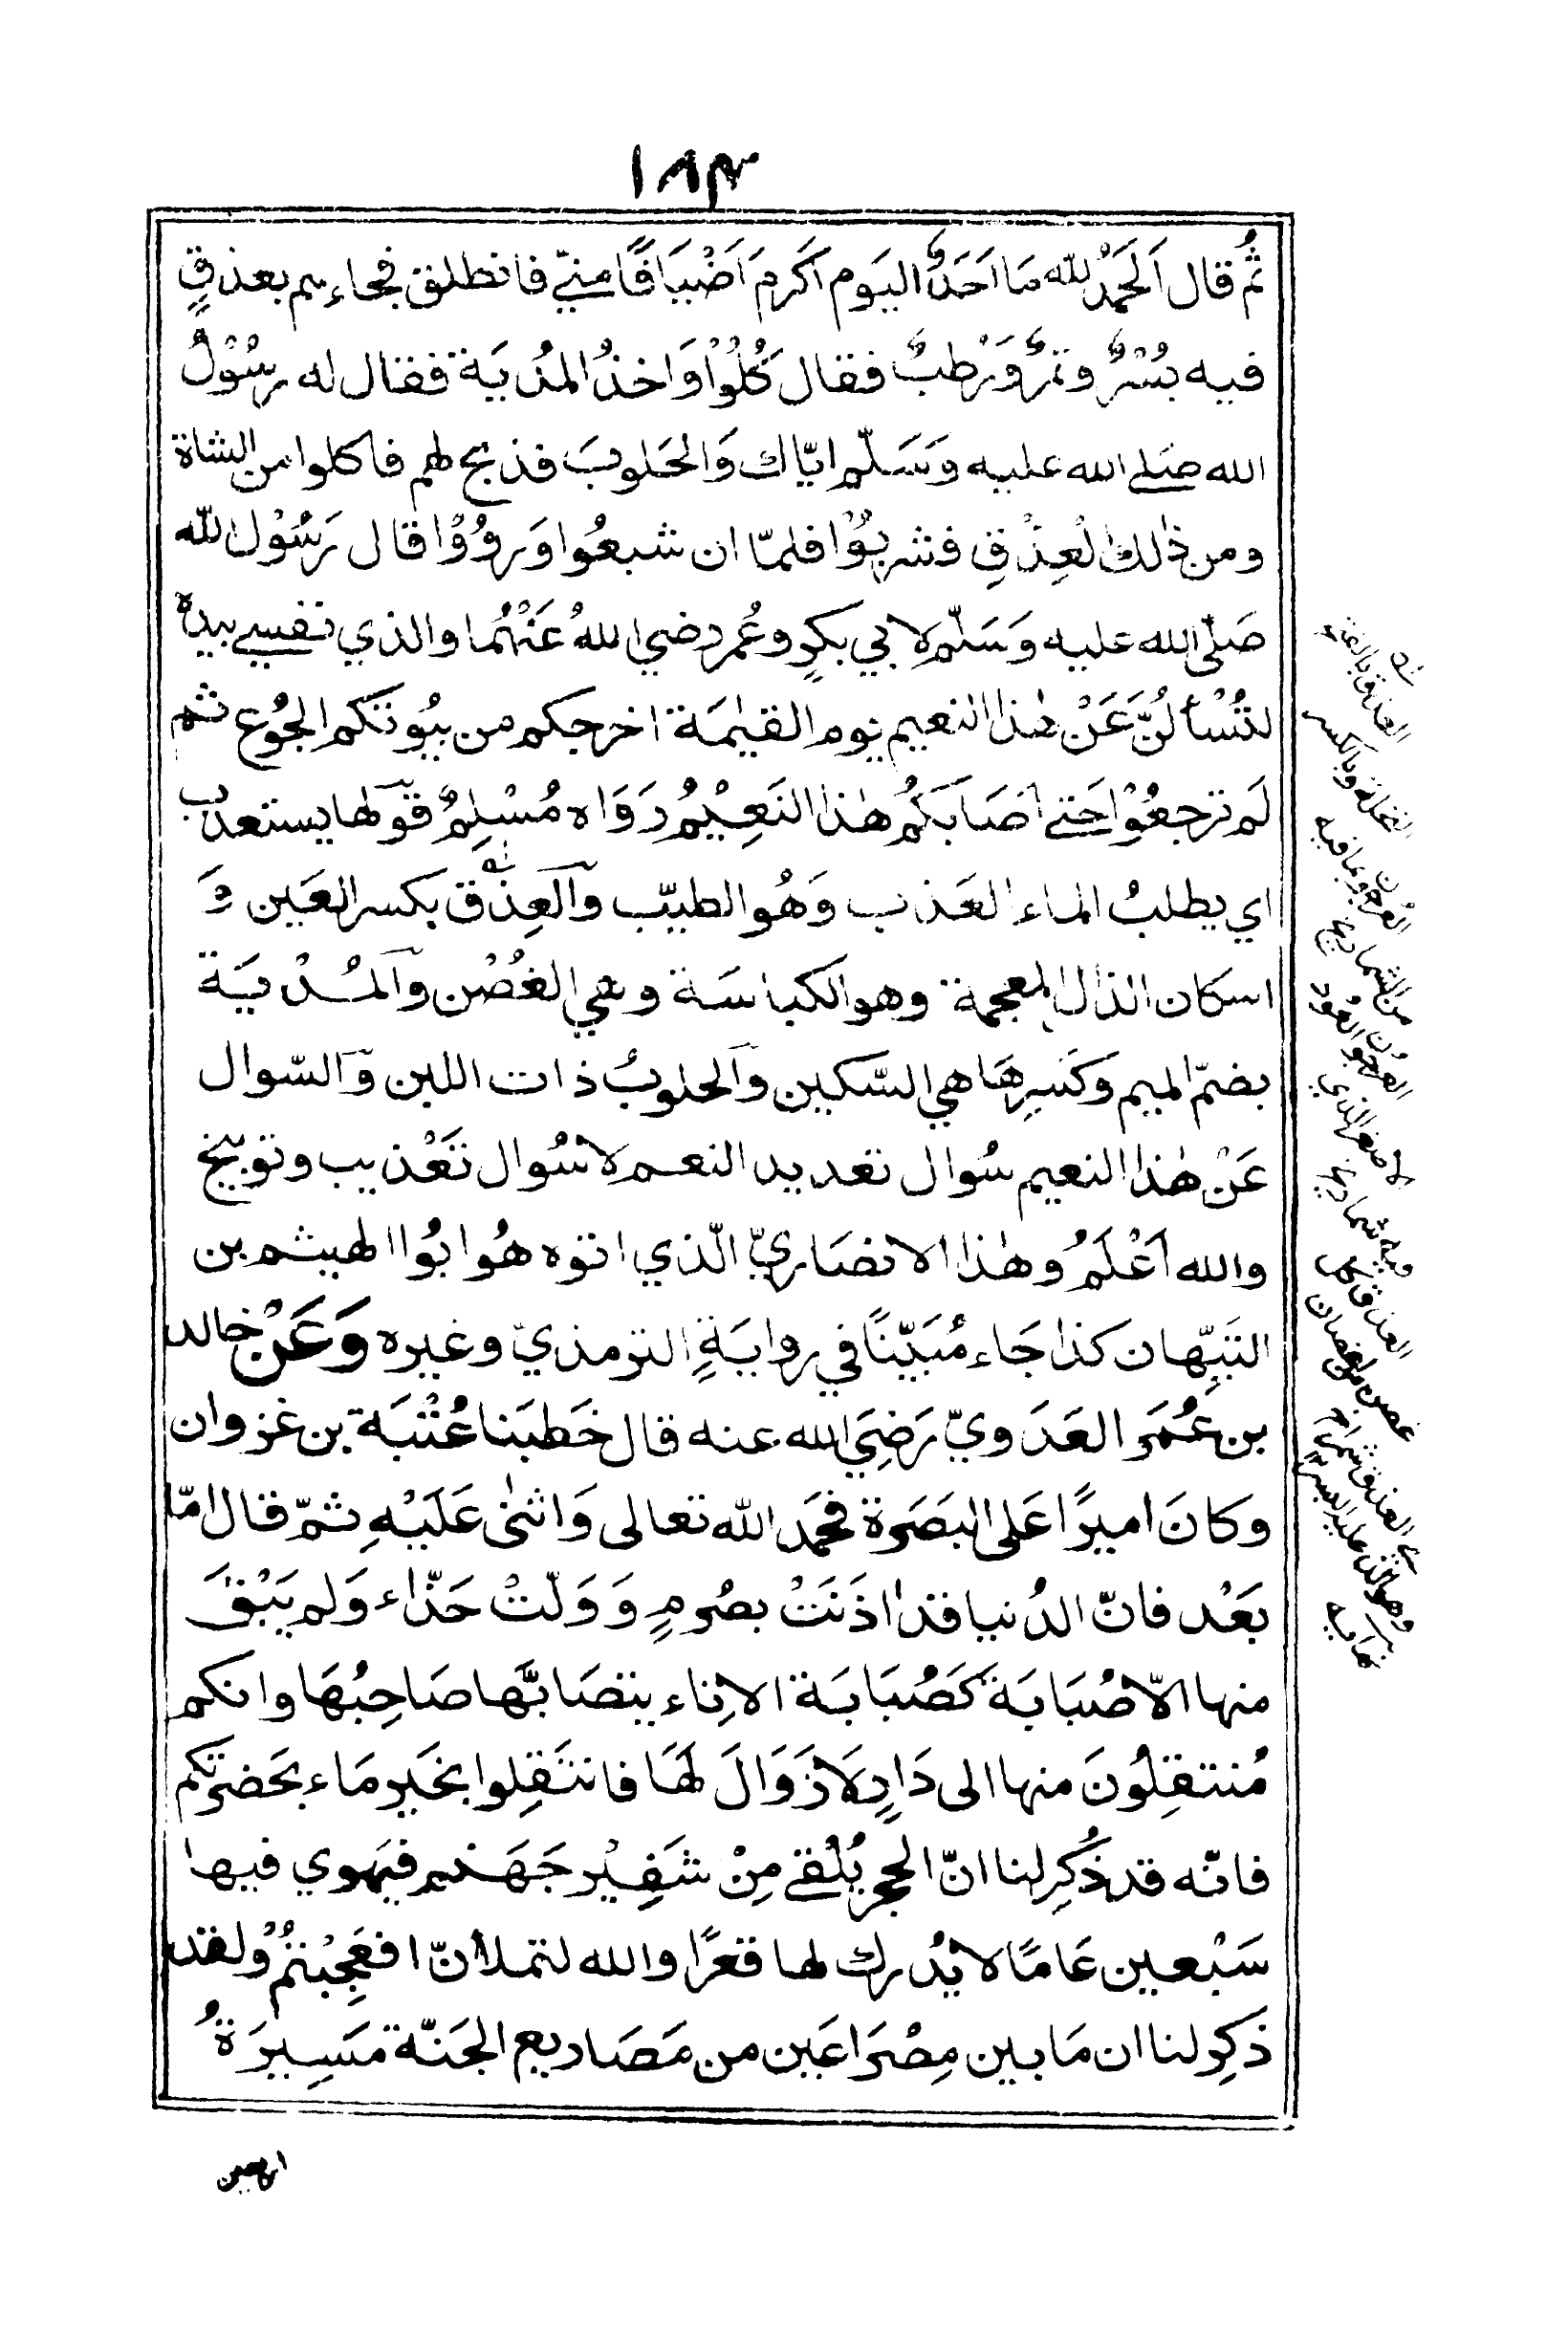 ١٨٣
ثُم قال اَلحَمدُ لله مَا اَحَدٌ اليَوم اَكرمَ اَضْيَافًا مِنيّ فانطلق فجاءهم بعذقٍ
فيه بُسْرٌ وتمرٌ وَرُطبٌ فقال كُلُوْا وَاخذُ المُديَة فقال له رسُوْلُ
الله صَلى الله عليه وَسَلّم ايّاك وَالحَلوبَ فذبح لهم فاكلوا من الشاة
ومن ذٰلك العِذْقِ فشربُوْا فلمّا ان شبعُوا وَرووُا قال رَسُوْل الله
صَلّى الله عليه وَسَلّم لابي بكرٍ وعُمر رضي اللهُ عَنْهُما والذي نفسي بيده
لتُسْأَلُنَّ عَنْ هٰذا النعيم يوم القيٰمَة اخرجكم من بيُوتكم الجُوع ثم
لَم ترجعُوْا حَتى اصَابَكُم هٰذا النَعِيْمُ رَوَاه مُسْلِمٌ قولها يستعذب
اي يطلبُ الماء العَذب وَهُو الطيّب وَالعِذْق بكسر العَين وَ
اسكان الذال المعجمة وهو الكباسَة وهي الغُصْن وَالمُدْيَة
بضمّ الميم وكَسِرهَا هي السّكين وَالحلوبُ ذات اللبن وَالسّوال
عَنْ هٰذا النعيم سُوال تعديد النعم لا سُوال تَعْذيب وتوبيخ
والله اَعْلَمُ وهٰذا الانصَاريّ الّذي اتوه هُو ابُو الهيثم بن
التَيِّهان كذا جَاء مُبَيّنًا في روايَةٍ الترمذيّ وغيره وَعَنْ خالد
بن عُمَر العَدَويّ رَضِيَ الله عنه قال خَطبَنا عُتْبَة بن غزوان
وكانَ اميرًا عَلى البَصَرة فحَمَد الله تعالى وَاثنىٰ عَلَيْهِ ثمّ قال امّا
بَعْد فانّ الدُنيا قد اٰذَنَتْ بصُرمٍ وَوَلّتْ حَذّاء وَلم يَبْقَ
منها الّا صُبَابَة كَصُبَابَة الاِناء يتصَابُّها صَاحِبُهَا وانكم
مُنتقِلُونَ منها الى دَارٍ لَا زَوَالَ لَهَا فانتَقِلوا بخَير مَاء بحَضرتكم
فانّه قد ذُكِر لنا انّ الحجر يُلْقى مِنْ شَفِيْر جَهَنم فيَهوي فيها
سَبْعين عَامًا لا يُدرك لها قعرًا والله لتملاَنّ افعَجِبْتُمْ ولقد
ذكِر لنا ان مَا بين مِصْرَاعَين من مَصَاريع الجَنّة مَسِيرَةُ
اربعين
العذق بالفتح
النخلة وبالكسر
العرجون بما فيه
من الشماريخ